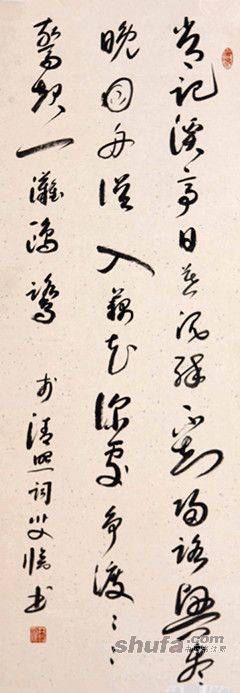 常记溪亭日暮沉醉不知归路兴尽
晚回舟误入藕花深处争渡争渡
惊起一灘鸥鹭
李清照词 书
shufa.com